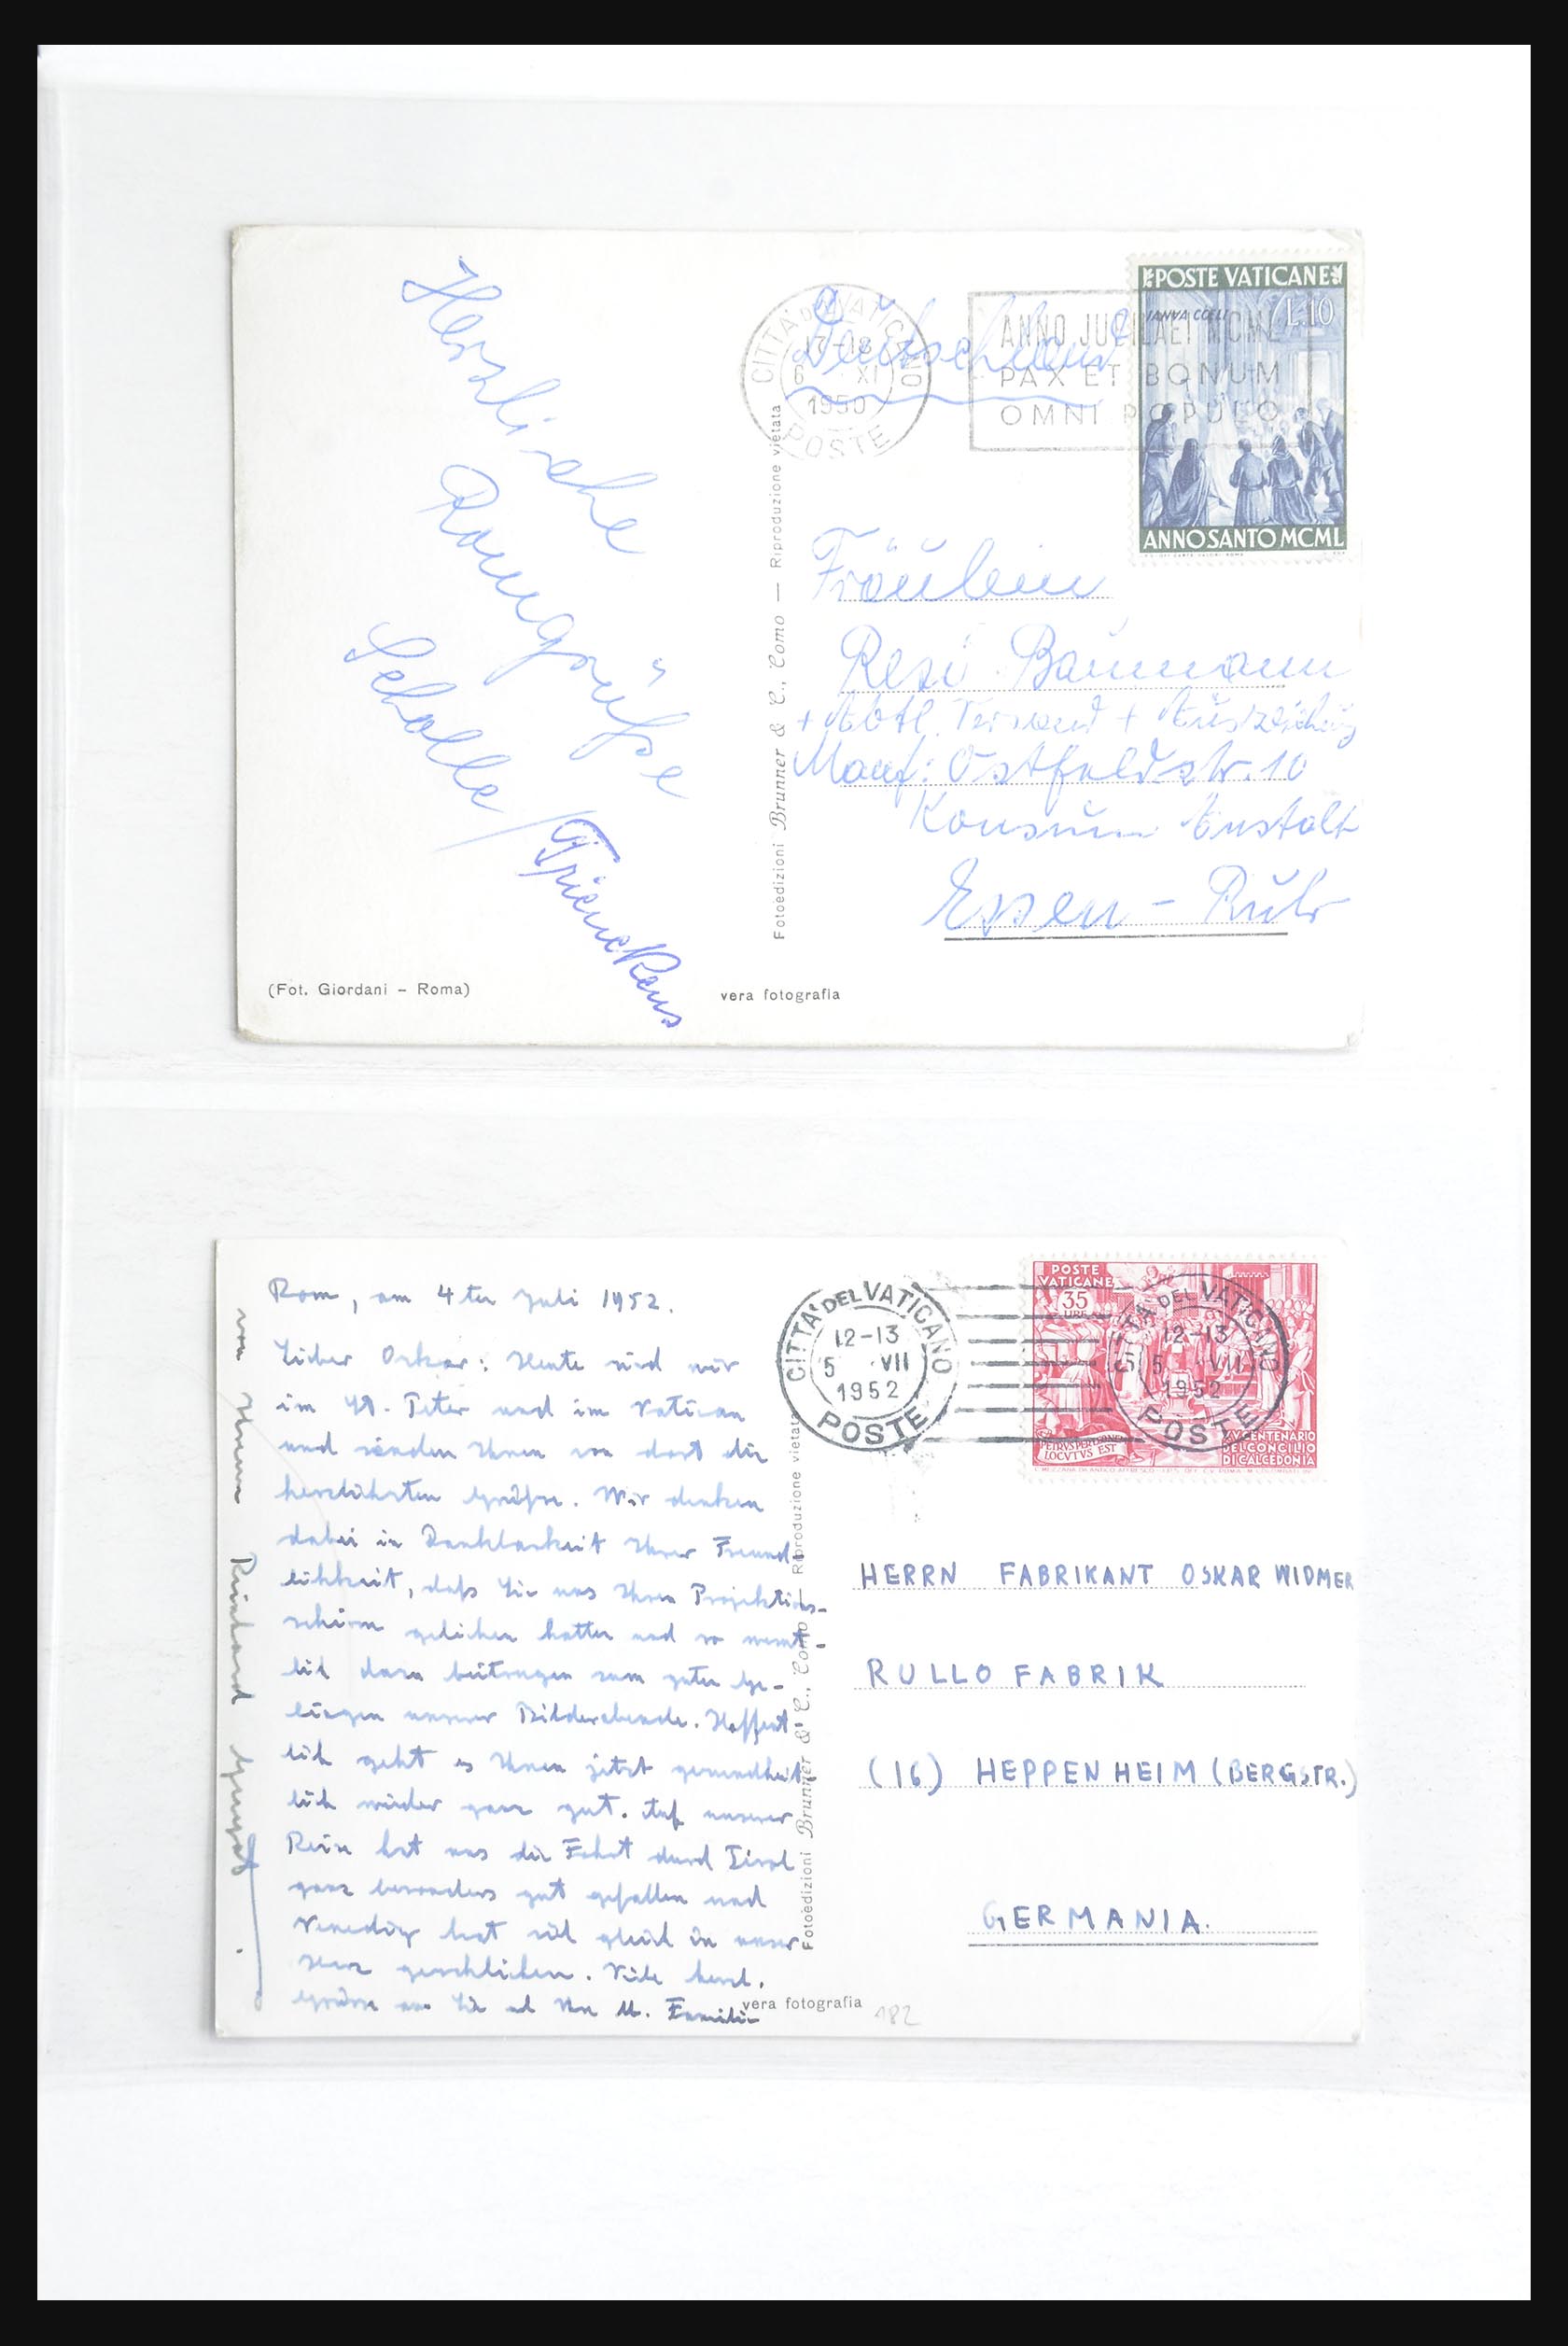 Herzliche
Romgrüße
Scholle /
CITTA' DEL VATICANO
17-18
6 XI
1950
POSTE
Deutschland
ANNO JUBILAEI MCML
PAX ET BONUM
OMNI POPULO
POSTE VATICANE
IANVA COELI
L.10
ANNO SANTO MCML
Fräulein
Resi Baumann
+ Abtl. Versand + Auszeichng
Manf: Ostfeldstr. 10
Konsum Anstalt
Essen - Ruhr
Fotoedizioni Brunner & C., Como — Riproduzione vietata
(Fot. Giordani - Roma)
vera fotografia
Rom, am 4ter Juli 1952.
Lieber Oskar: Heute sind wir
im St. Peter und im Vatican
und senden Ihnen von dort die
herzlichsten Grüße. Wir denken
dabei in Dankbarkeit Ihrer Freund-
lichkeit, daß Sie uns Ihren Projektions-
schirm geliehen hatten und so wesent-
lich dazu beitrugen zum guten Ge-
lingen unserer Bilderabende. Hoffent-
lich geht es Ihnen jetzt gesundheit-
lich wieder ganz gut. Auf unserer
Reise hat uns die Fahrt durch Tirol
ganz besonders gut gefallen und
Venedig hat sich gleich in unser
Herz geschlichen. Viele herzl.
Grüsse an Sie Familie
von Ihrem Reinhard
CITTA' DEL VATICANO
12-13
5 VII
1952
POSTE
POSTE
VATICANE
35
LIRE
CITTA' DEL VATICANO
12-13
5 VII
1952
POSTE
PETRVS PER LEONEM
LOCVTVS EST
XV CENTENARIO
DEL CONCILIO
DI CALCEDONIA
HERRN FABRIKANT OSKAR WIDMER
RULLO FABRIK
(16) HEPPENHEIM (BERGSTR.)
GERMANIA.
Fotoedizioni Brunner & C., Como — Riproduzione vietata
vera fotografia
182